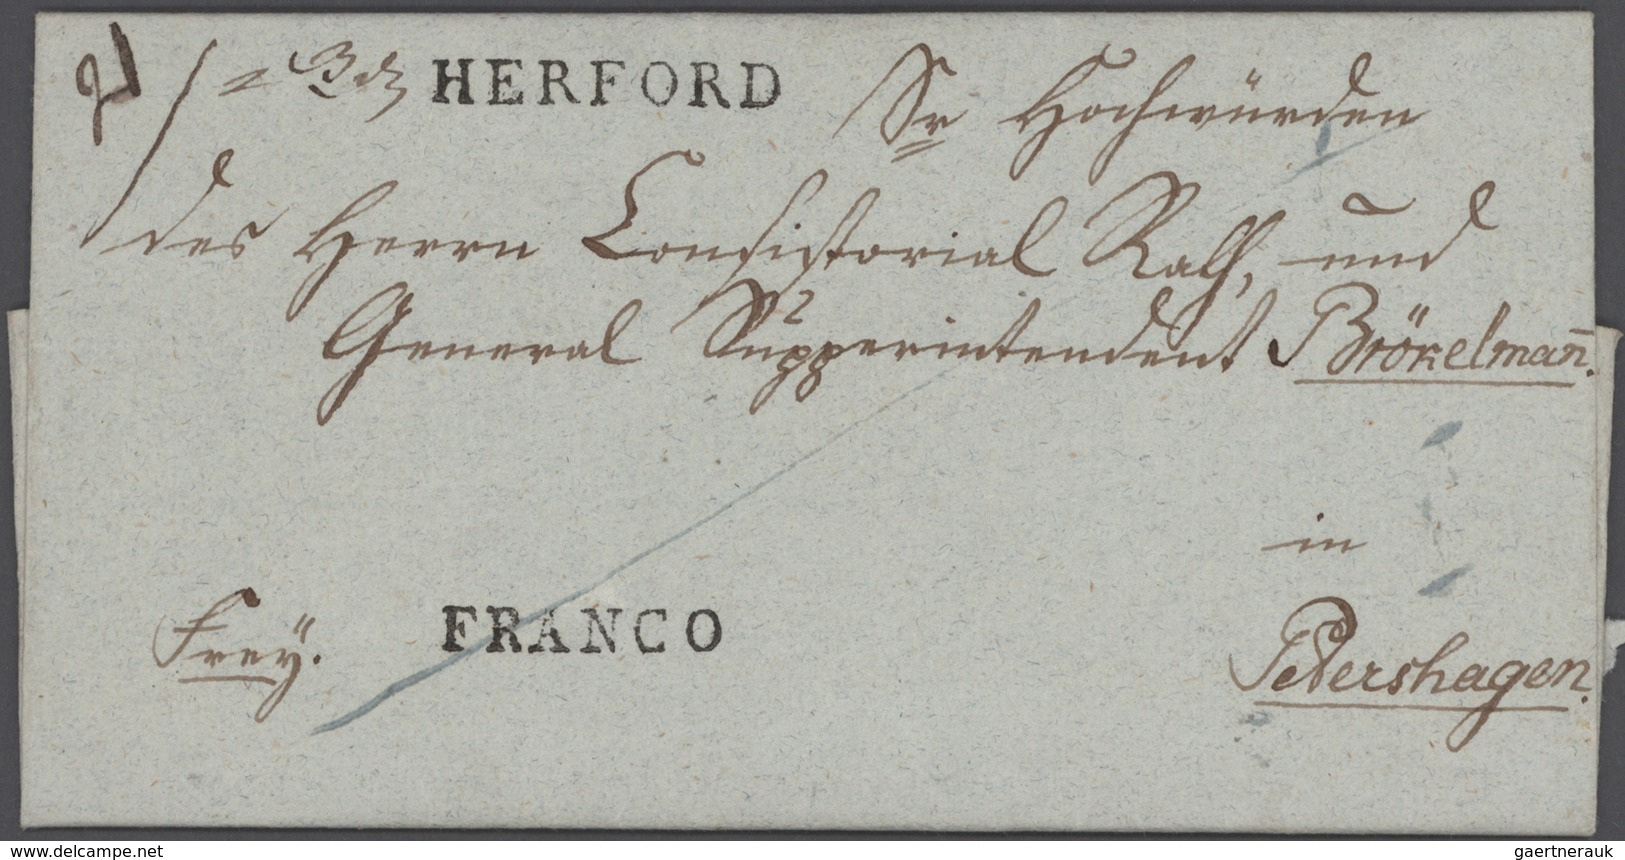 HERFORD Sr Hochwürden
des Herrn Consistorial Rath, und
General Supperintendent Brökelman̅.
in
Frey. FRANCO Petershagen.
www.delcampe.net gaertnerauk